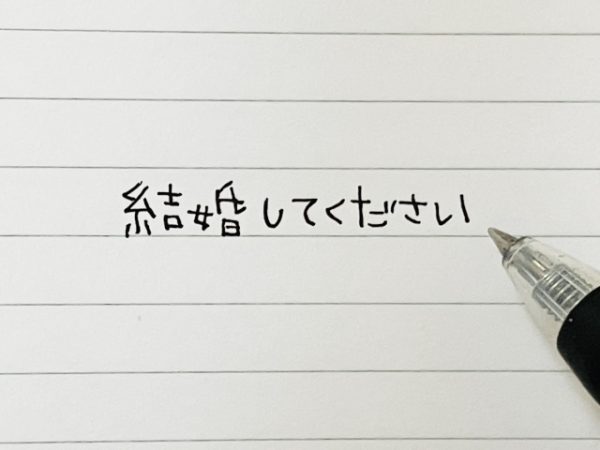 結婚してください